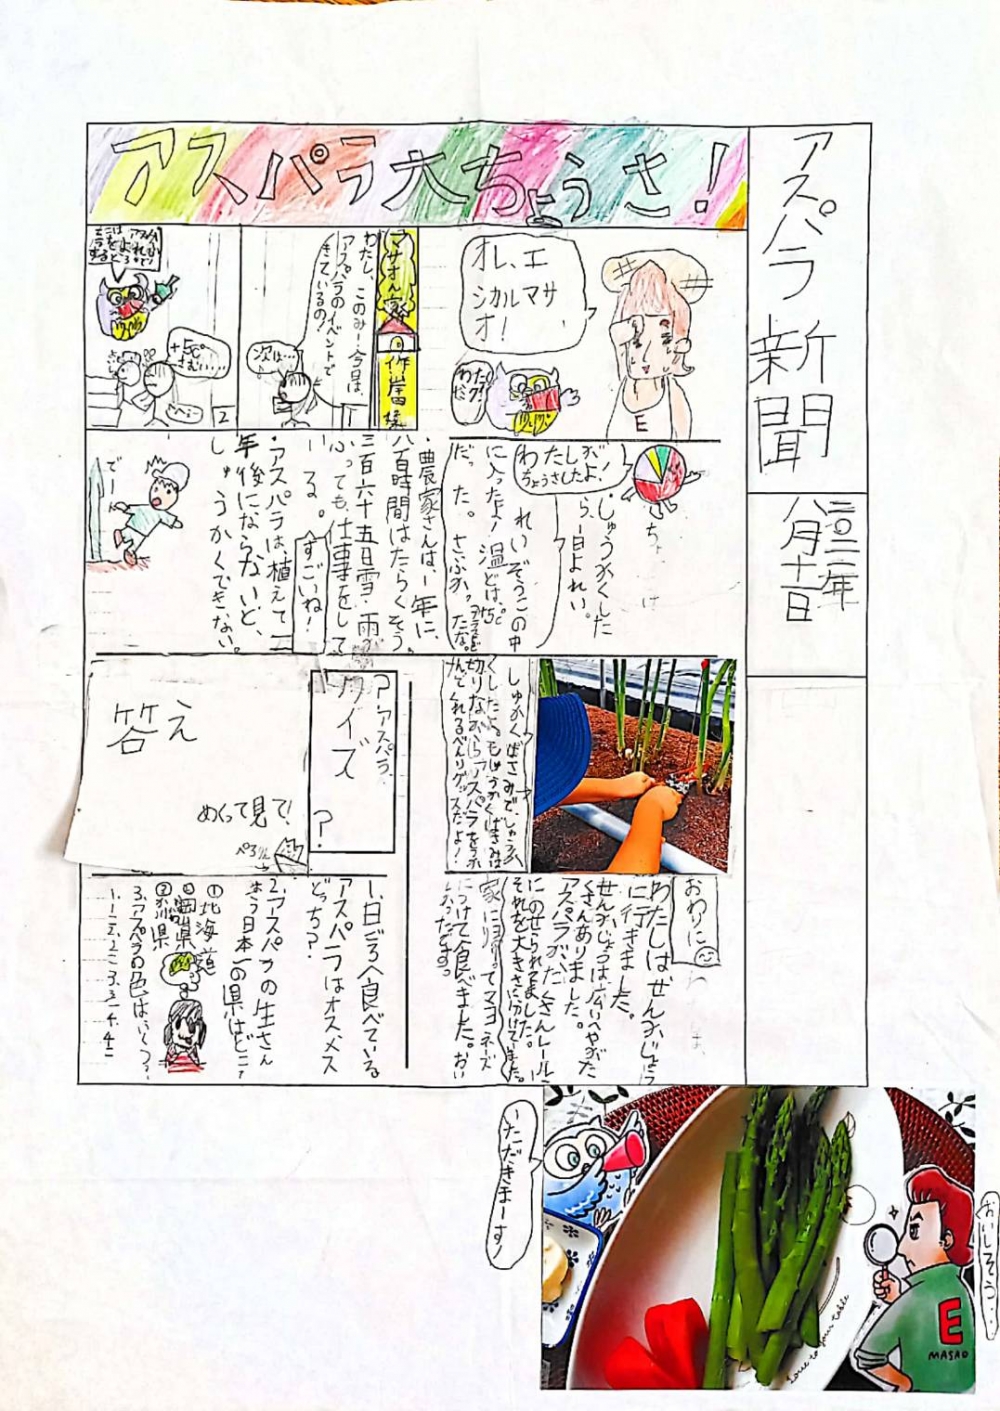 アスパラ新聞
二〇二一年
八月十一日
アスパラ大ちょうさ!
オレ、エ
シカルマサ
オ!
E
わたし、このみ!今日は、
アスパラのイベントで
きているの!
次は…
2
+5℃
さむい…
わたしが
ちょうさしたよ!
しゅうかくした
ら、一日よれい。
れいぞうこの中
に入ったよ!温どは、+5℃
だった。さぶかったな。
・農家さんは一年に、
八百時間はたらくそう。
三百六十五日雪・雨が
ふっても、仕事をして
いる。
すごいね!
・アスパラは、植えて二
年後にならないと、
しゅうかくできない。
でーん
しゅうかくばさみで、しゅうか
くしたよ。
切りながらアスパラをつか
?アスパラ
クイズ
?
答え
めくって見て!
ペラリ
1.日ごろ食べている
アスパラはオス、メス
どっち?
2.アスパラの生さん
日本一の県はどこ?
①北海道
②岡山県
③香川県
3.アスパラの色はいくつ?
1.一 2.二 3.三 4.四
おわりに
わたしは、ぜんかじょう
に行きました。
せんかじょうは、広いへやがた
くさんありました。
アスパラが、たくさんレール
にのせられてました。
それを大きさに分けてました。
家にもどってマヨネーズ
につけて食べました。おい
しかったです。
いただきまーす!
おいしそう…
E
MASAO
Love to your table